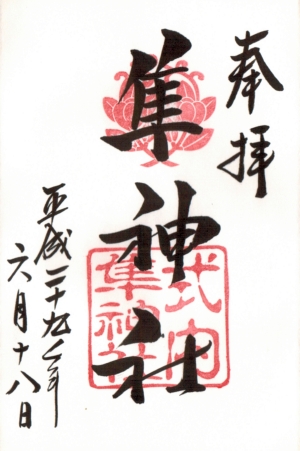 奉拝
隼神社
式内
隼神社
平成二十九年
六月十八日